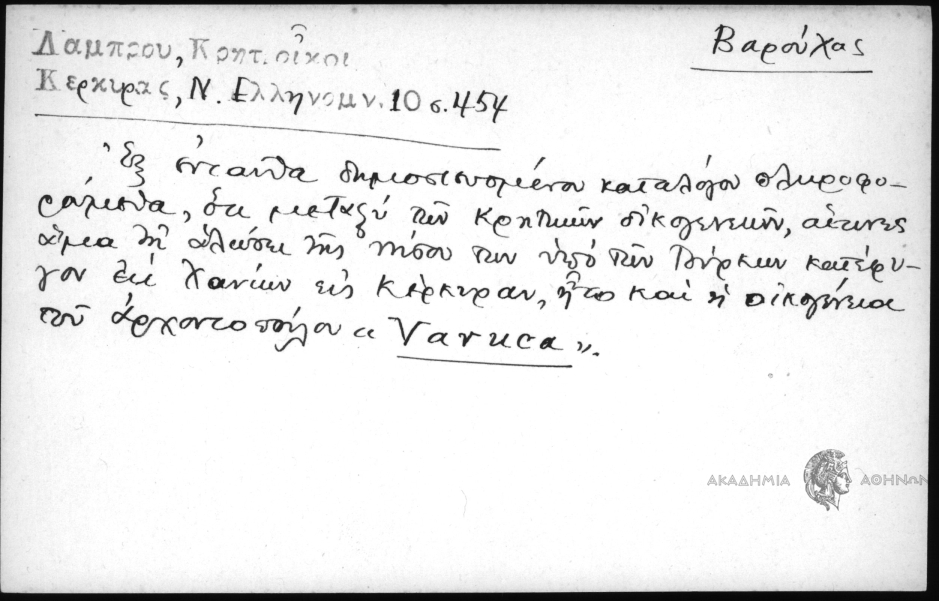 Βαρούχας
Λαμπρου, Κρητ. οἶκοι
Κερκυρας, Ν. Ελληνομν. 10 σ. 454
Ἐξ ἐνταῦθα δημοσιευομένου καταλόγου πληροφο-
ρούμεθα, ὅτι μεταξύ τῶν Κρητικῶν οἰκογενειῶν, αἵτινες
ἅμα τῇ ἁλώσει τῆς νήσου των ὑπό τῶν Τούρκων κατέφυ-
γον ἐκ Χανίων εἰς Κέρκυραν, ἦτο καί ἡ οἰκογένεια
τοῦ ἀρχοντοπούλου « Varuca ».
ΑΚΑΔΗΜΙΑ ΑΘΗΝΩΝ